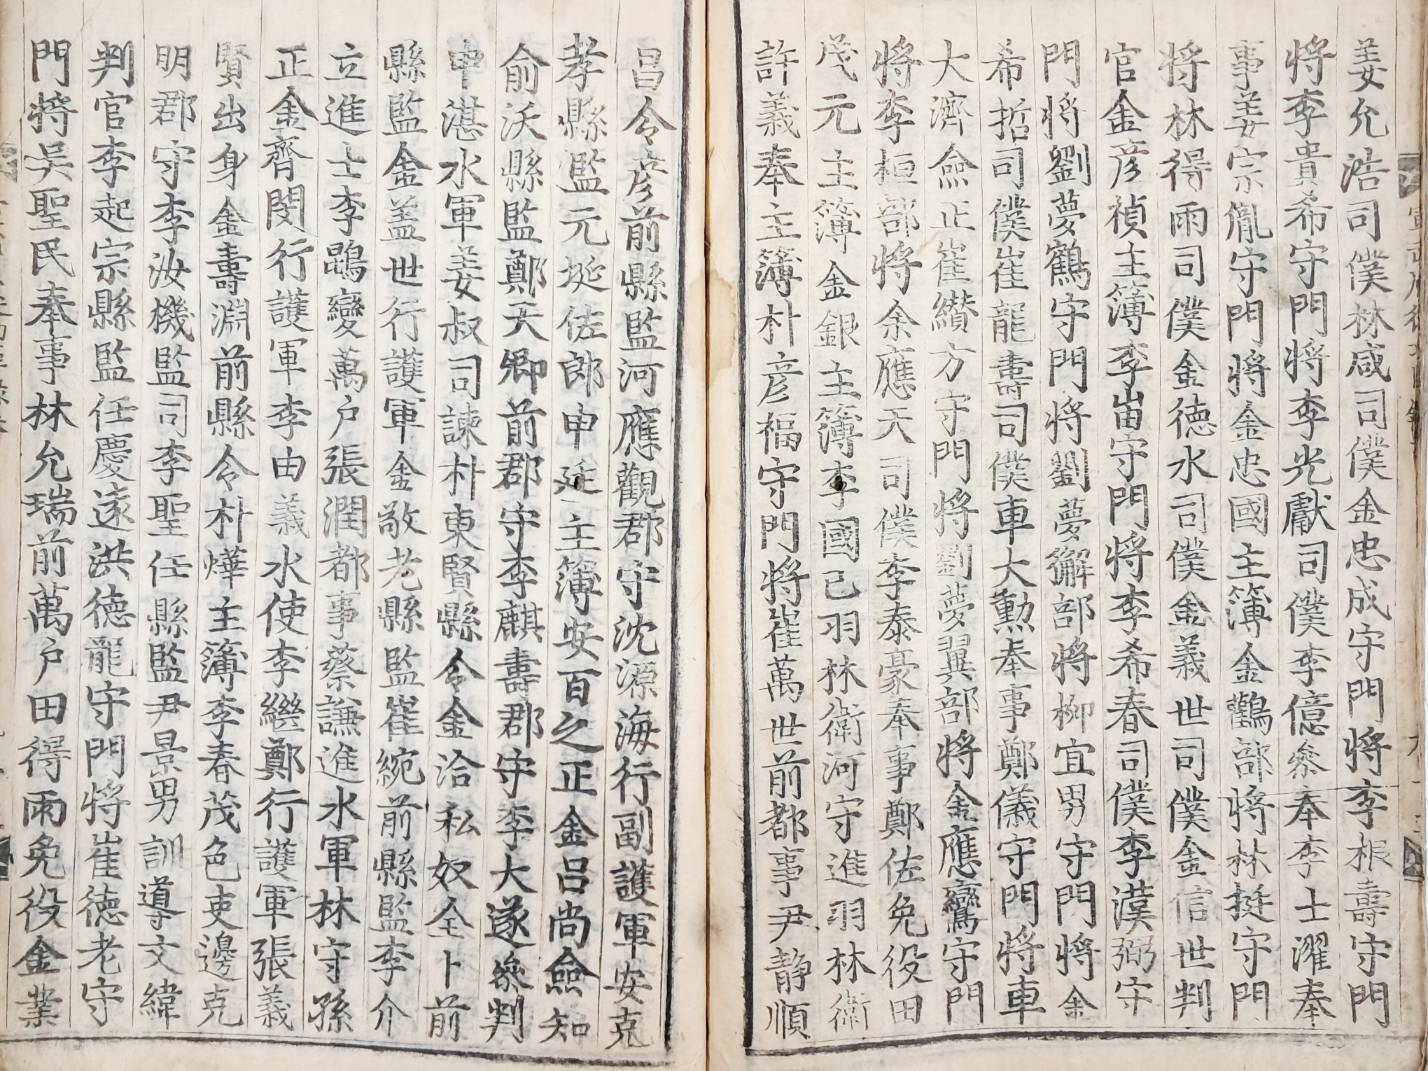 姜允浩司僕林咸司僕金忠成守門將李根壽守門
將李貴希守門將李光獻司僕李億叅奉李士濯奉
事姜宗胤守門將金忠國主簿金鸛部將林挺守門
將林得雨司僕金德水司僕金義世司僕金信世判
官金彦禎主簿李峀守門將李希春司僕李漢弼守
門將劉夢鶴守門將劉夢獬部將柳宜男守門將金
希哲司僕崔龍壽司僕車大勳奉事鄭儀守門將車
大濟僉正崔纘方守門將劉夢翼部將金應鸞守門
將李桓部將余應天司僕李泰豪奉事鄭佐免役田
茂元主簿金銀主簿李國己羽林衛河守進羽林衛
許義奉主簿朴彦福守門將崔萬世前都事尹静順
昌令彦前縣監河應觀郡守沈源海行副護軍安克
孝縣監元埏佐郎申延主簿安百之正金呂尚僉知
俞沃縣監鄭天卿前郡守李麒壽郡守李大遂叅判
申湛水軍姜叔司諫朴東賢縣令金洽私奴仝卜前
縣監金盖世行護軍金敬老縣監崔綄前縣監李介
立進士李鵾變萬户張潤都事蔡謙進水軍林守孫
正金齊閔行護軍李由義水使李繼鄭行護軍張義
賢出身金壽淵前縣令朴燁主簿李春茂色吏邊克
明郡守李汝機監司李聖任縣監尹景男訓導文緯
判官李起宗縣監任慶遂洪德龍守門將崔德老守
門將吴聖民奉事林允瑞前萬户田得雨免役金業